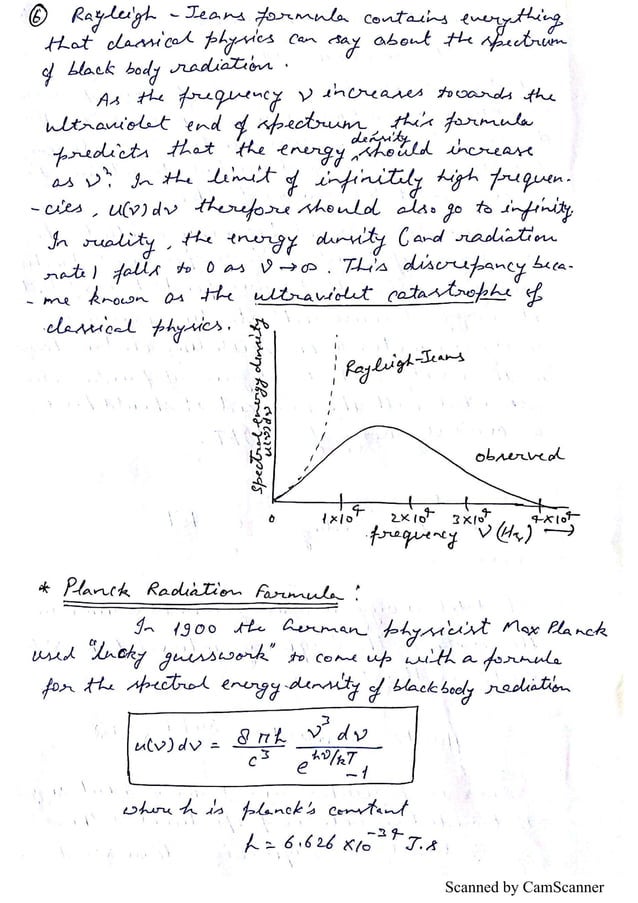 ⑥ Rayleigh - Jeans formula contains everything
that classical physics can say about the spectrum
of black body radiation.
As the frequency ν increases towards the
ultraviolet end of spectrum, this formula
predicts that the energy density should increase
as ν². In the limit of infinitely high frequen-
-cies, u(ν)dν therefore should also go to infinity.
In reality, the energy density (and radiation
rate) falls to 0 as ν→∞. This discrepancy beca-
-me known as the ultraviolet catastrophe of
classical physics.
spectral energy density
u(ν)dν
Rayleigh-Jeans
observed
0 1×10⁴ 2×10⁴ 3×10⁴ 4×10⁴
frequency ν(Hz) →
* Planck Radiation Formula :
In 1900 the German physicist Max Planck
used "lucky guesswork" to come up with a formula
for the spectral energy-density of blackbody radiation
u(ν)dν = 8πh/c³ ν³dν/(e^(hν/kT) - 1)
where h is planck's constant
h = 6.626 × 10⁻³⁴ J.s
Scanned by CamScanner